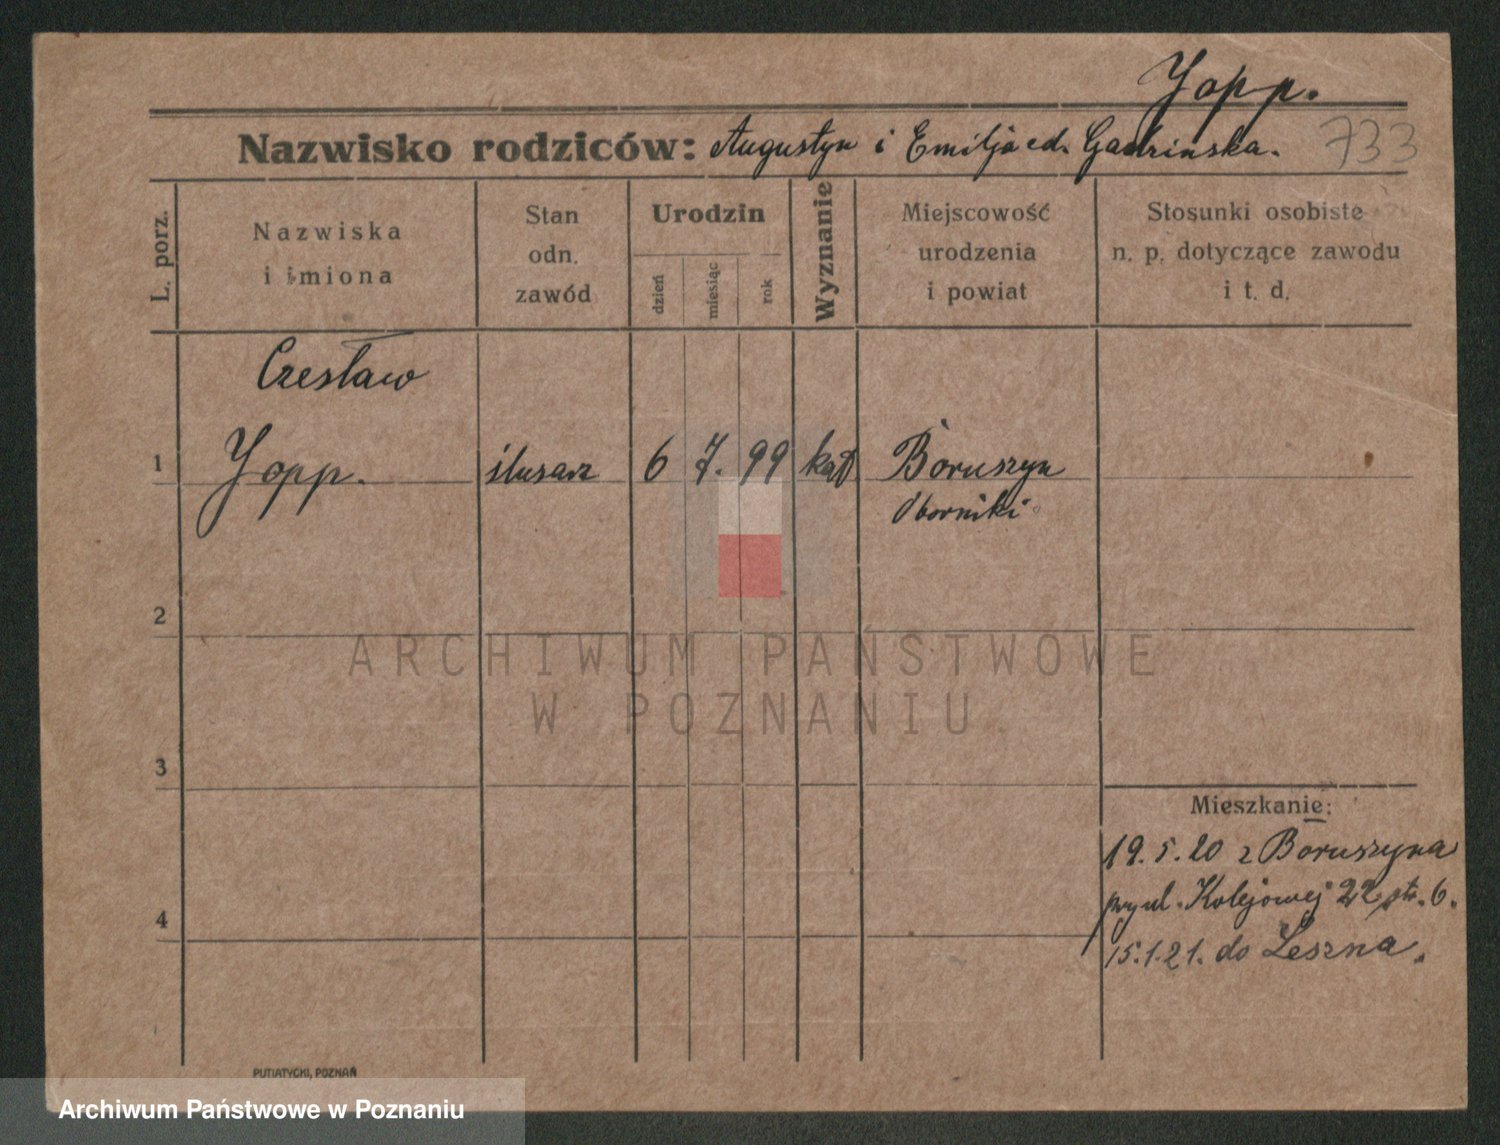 Yopp.
Nazwisko rodziców: Augustyn i Emilja cd. Gadzinska.
733
L. porz.
Nazwiska
i imiona
Stan
odn.
zawód
Urodzin
dzień
miesiąc
rok
Wyznanie
Miejscowość
urodzenia
i powiat
Stosunki osobiste
n. p. dotyczące zawodu
i t. d.
Czesław
1 Yopp. ślusarz 6 7. 99 kat Boruszyn
Oborniki
2
ARCHIWUM PAŃSTWOWE
W POZNANIU
3
Mieszkanie:
19.5.20 z Boruszyna
przy ul. Kolejowej 22 ptr. 6.
4
15.1.21. do Leszna.
PUTIATYCKI, POZNAŃ
Archiwum Państwowe w Poznaniu